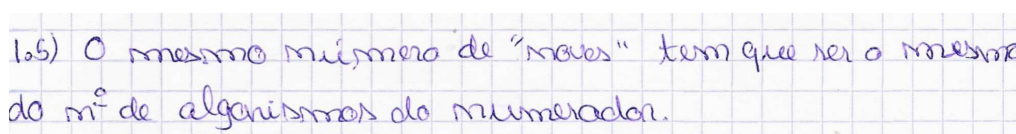 1.5) O mesmo número de "noves" tem que ser o mesmo
do nº de algarismos do numerador.